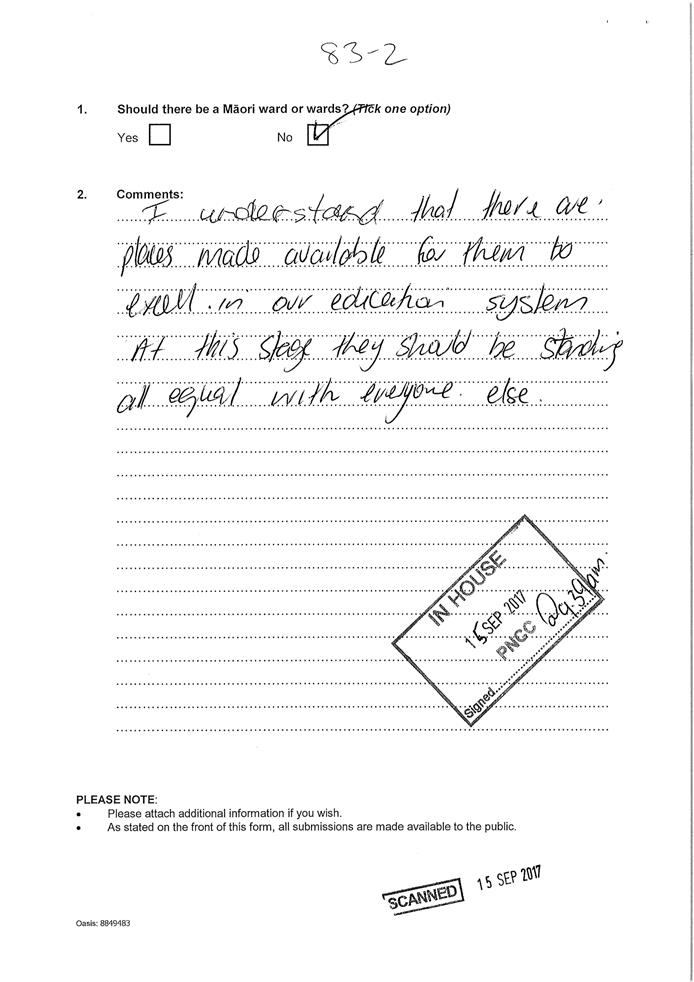 83-2
1. Should there be a Māori ward or wards? (Tick one option)
Yes No
2. Comments:
I understand that there are
places made available for them to
excell in our education system
At this stage they should be standing
all equal with everyone else.
IN HOUSE
15 SEP 2017
PNCC @9.39am.
Signed
PLEASE NOTE:
• Please attach additional information if you wish.
• As stated on the front of this form, all submissions are made available to the public.
SCANNED 15 SEP 2017
Oasis: 8849483